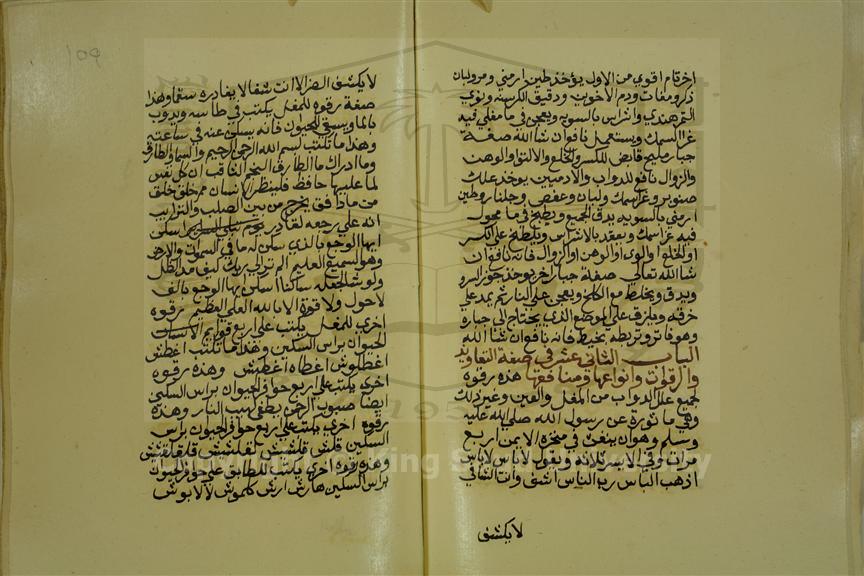 اخر تام اقوي من الاول يؤخذ طين ارمني ومر ولبان
ذكر ومغات ودم الاخوين ودقيق الكرسنه ونوي
التمر هندي واشراس بالسويه ويعجن في ما مغلي فيه
غرا السمك ويستعمل نافع ان شا الله صفة
جبار مليح قابض للكسر والخلع والالتوا والوهن
والزوال نافع للدواب والادميين يوخذ علك
صنوبر وغرا سمك ولبان وعفص وجلنار وطين
ارمني بالسويه يدق الجميع ويطبخ في ما محلول
فيه غرا سمك ويعقد بالاشراس ويلطخ علي الكسر
او الخلع او اللوي او الوهن او الزوال فانه نافع ان
شا الله تعالي صفة جبار اخر يوخذ جوز السرو
ويدق ويخلط مع الكل ويعجن علي النار ثم يمد علي
خرقه ويلزق علي الموضع الذي يحتاج الي جباره
وهو فاتر وتربطه بخيط فانه نافع ان شا الله
الباب الثاني عشر في صفة التعاويذ
والرقوات وانواعها ومنافعها هذه رقوه
لجميع علل الدواب من المغل والعين وغير ذلك
وهي ماثورة عن رسول الله صلي الله عليه
وسلم وهو ان ينفث في منخره الايمن اربع
مرات وفي الايسر ثلاثه ويقول لا باس لا باس
اذهب الباس رب الناس اشفي وانت الشافي
لا يكشف
109
لا يكشف الضر الا انت شفا لا يغادره سقما وهذا
صفة رقوه للمغل يكتب في طاسه ويذوب
بالما ويسقي للحيوان فانه يسكن عنه في ساعته
وهذا ما تكتب بسم الله الرحمن الرحيم والسما والطارق
وما ادراك ما الطارق النجم الثاقب ان كل نفس
لما عليها حافظ فلينظر الانسان مم خلق خلق
من ما دافق يخرج من بين الصلب والترايب
انه علي رجعه لقادر يوم تبلي السراير اسكن
ايها الوجع بالذي سكن له ما في السموات والارض
وهو السميع العليم الم تر الي ربك كيف مد الظل
ولو شا لجعله ساكنا اسكن ايها الوجع بالف
لا حول ولا قوة الا بالله العلي العظيم رقوه
اخري للمغل يكتب علي اربع قوايم
الحيوان براس السكين وهذا ما تكتب اغطش
اغطلوش اعطاه اغطيش وهذه رقوه
اخري يكتب علي اربع حوافر الحيوان براس السكين
ايضا الرحمن يطفي لهيب النار وهذه
رقوه اخري يكتب علي اربع حوافر الحيوان براس
السكين قلش قلقش
وهذه رقوه اخري يكتب للطابق علي حوافر الحيوان
براس السكين هارش ارش كلموش لالابوش